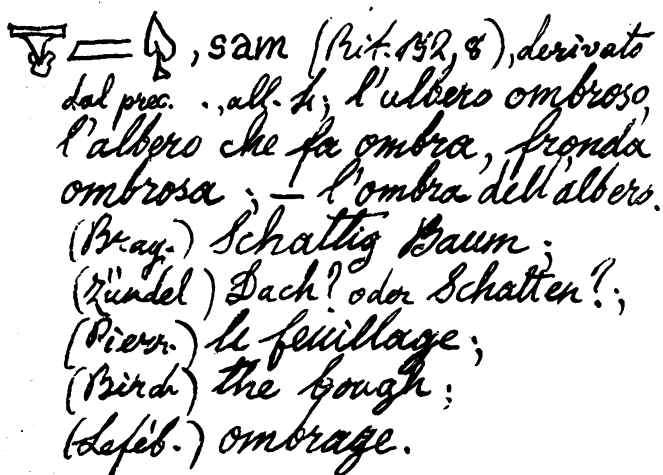 , sam (Rit. 152, 8), derivato
dal prec. ., all. h; l'albero ombroso,
l'albero che fa ombra, fronda
ombrosa ; — l'ombra dell'albero.
(Brug.) Schattig Baum ;
(Zündel) Dach? oder Schatten? ;
(Pierr.) le feuillage ;
(Birch) the bough ;
(Leféb.) ombrage.